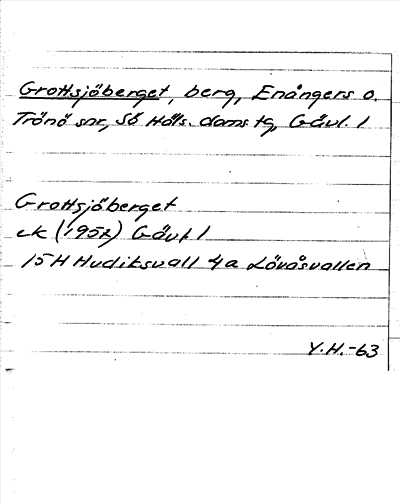 Grottsjöberget, berg, Enångers o.
Trönö snr, Sö Häls. doms tg, Gävl. l
Grottsjöberget
ek (1957) Gävl. l
15H Hudiksvall 4a Lövåsvallen
Y.H.-63